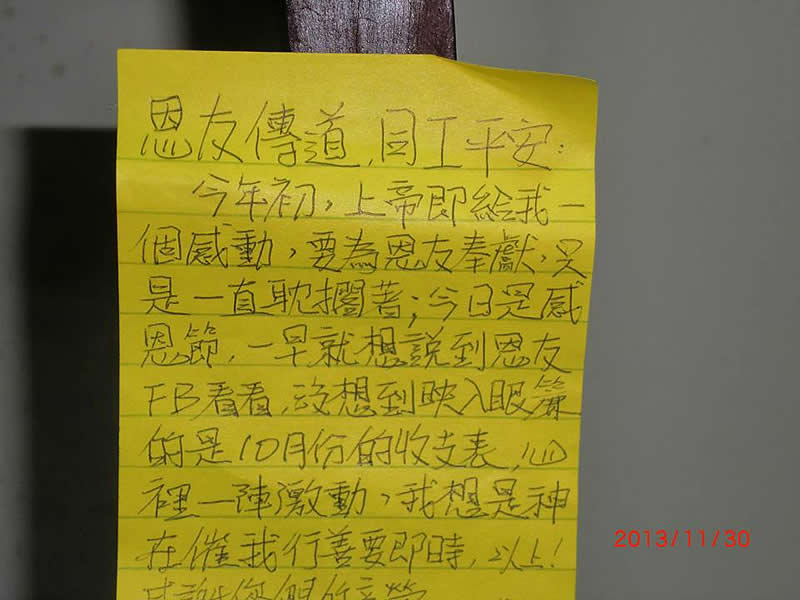 恩友傳道、同工平安：
今年初，上帝即給我一
個感動，要為恩友奉獻，只
是一直耽擱著；今日是感
恩節，一早就想說到恩友
FB看看，沒想到映入眼簾
的是10月份的收支表，心
裡一陣激動，我想是神
在催我行善要即時，以上！
感謝您們的辛勞
2013/11/30